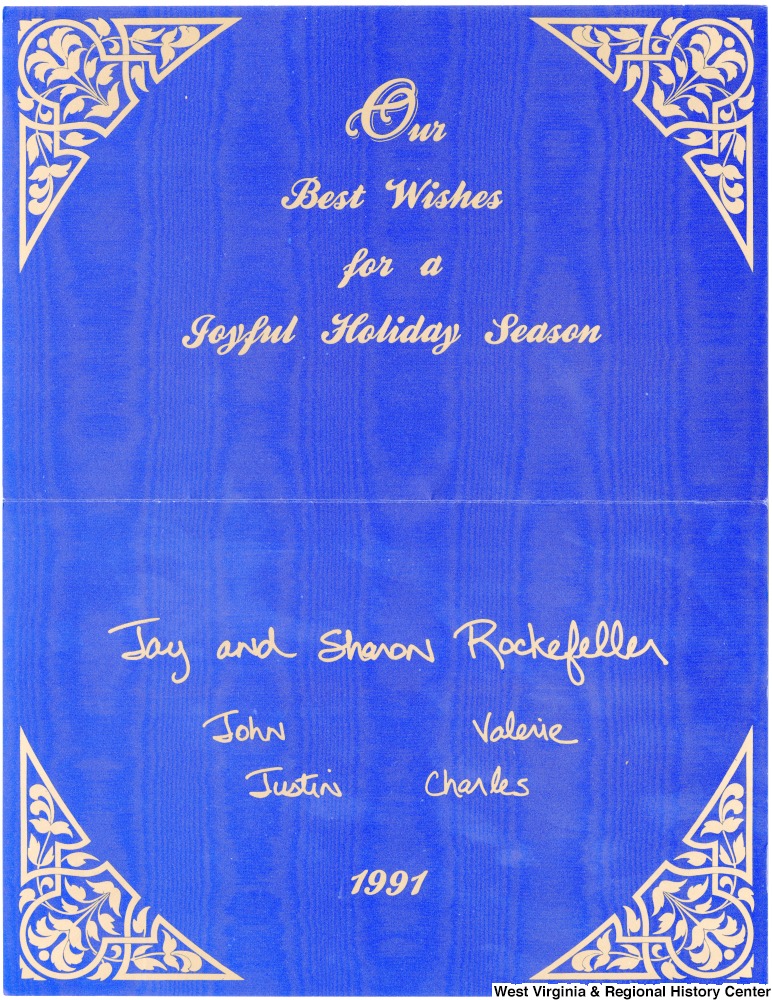 Our
Best Wishes
for a
Joyful Holiday Season
Jay and Sharon Rockefeller
John Valerie
Justin Charles
1991
West Virginia & Regional History Center